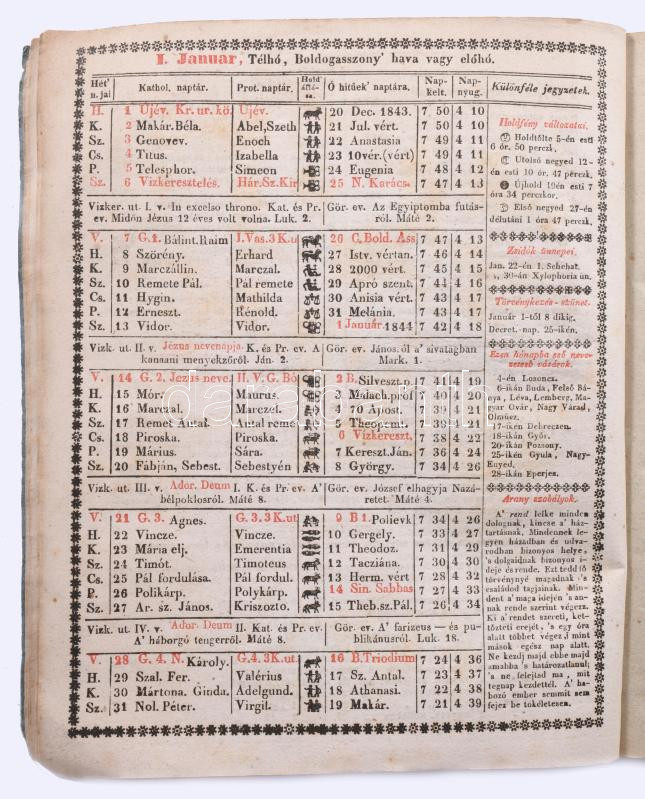 I. Januar, Télhó, Boldogasszony' hava vagy előhó.
Hét' n. jai | Kathol. naptár. | Prot. naptár. | Hold' | Ó hitüek' naptára. | Nap-kelt. | Nap-nyug. | Különféle jegyzetek.
H. 1 Újév. Kr. ur. kö. Újév. 20 Dec. 1843. 7 50 4 10
K. 2 Makár. Béla. Abel, Szeth 21 Jul. vért. 7 50 4 10
Sz. 3 Genovev. Enoch 22 Anastasia 7 49 4 11
Cs. 4 Titus. Izabella 23 10vér.(vért) 7 49 4 11
P. 5 Telesphor. Simeon 24 Eugenia 7 48 4 12
Sz. 6 Vizkeresztelés. Hár. Sz. Kir 25 N. Karács. 7 47 4 13
Vizker. ut. I. v. In excelso throno. Kat. és Pr. Gör. ev. Az Egyiptomba futás-
ev. Midőn Jézus 12 éves volt volna. Luk. 2. ról. Máté 2.
V. 7 G. 1. Bálint. Raim J. Vas. 3 K. u 26 C. Bold. Ass 7 47 4 13
H. 8 Szörény. Erhard 27 Istv. vértan. 7 46 4 14
K. 9 Marczállin. Marczal. 28 2000 vért. 7 45 4 15
Sz. 10 Remete Pál. Pál remete 29 Apró szent. 7 44 4 16
Cs. 11 Hygin. Mathilda 30 Anisia vért. 7 43 4 17
P. 12 Erneszt. Rénold. 31 Melánia. 7 43 4 17
Sz. 13 Vidor. Vidor. 1 Január. 1844 7 42 4 18
Vizk. ut. II. v. Jézus nevenapja. K. és Pr. ev. A Gör. ev. János.ól a' sivatagban
kanaani menyekzőről. Ján. 2. Mark. 1.
V. 14 G. 2. Jezus neve. H. V. G. Bó 2 B. Silveszt.p. 7 41 4 19
H. 15 Mór. Maurus. 3 Malach. próf 7 40 4 20
K. 16 Marczal. Marczel. 4 70 Apost. 7 39 4 21
Sz. 17 Remet Antal. Antal remé 5 Theopemt. 7 39 4 21
Cs. 18 Piroska. Piroska. 6 Vizkereszt, 7 38 4 22
P. 19 Márius. Sára. 7 Kereszt. Ján. 7 36 4 24
Sz. 20 Fábján, Sebest. Sebestyén 8 György. 7 34 4 26
Vizk. ut. III. v. Ador. Deum I. K. és Pr. ev. A' Gör. ev. József elhagyja Nazá-
bélpoklosról. Máté 8. retet. Máté 4.
V. 21 G. 3. Agnes. G. 3. 3 K. ut 9 B 1. Polievk 7 34 4 26
H. 22 Vincze. Vincze. 10 Gergely. 7 33 4 27
K. 23 Mária elj. Emerentia 11 Theodoz. 7 31 4 29
Sz. 24 Timót. Timoteus 12 Tacziána. 7 30 4 30
Cs. 25 Pál fordulása. Pál fordul. 13 Herm. vért 7 28 4 32
P. 26 Polikárp. Polykárp. 14 Sin. Sabbas 7 27 4 33
Sz. 27 Ar. sz. János. Kriszozto. 15 Theb. sz. Pál. 7 26 4 34
Vizk. ut. IV. v. Ador. Deum II. Kat. és Pr. ev. Gör. ev. A' farizeus — és pu-
A' háborgó tengerről. Máté 8. plikánusról. Luk. 18.
V. 28 G. 4. N. Károly. G. 4. 3 K. ut. 16 B. Triodium 7 24 4 36
H. 29 Szal. Fer. Valérius 17 Sz. Antal. 7 23 4 37
K. 30 Mártona. Ginda. Adelgund. 18 Athanasi. 7 22 4 38
Sz. 31 Nol. Péter. Virgil. 19 Makár. 7 21 4 39
Holdfény változatai.
Holdtölte 5-én esti
6 ór. 50 perczk.
Utolsó negyed 12-
én esti 10 ór. 47 perczk.
Újhold 19én esti 7
óra 34 perczkor.
Első negyed 27-én
délutáni 1 óra 47 perczk.
Zsidók ünnepei.
Jan. 22-én 1. Sehebat.
„ 30-án Xylophoria ün.
Törvénykezés-szünet.
Január 1-től 8 dikig.
Decret. nap. 25-ikén.
Ezen hónapba eső neve-
zetesb vásárok.
4-én Losoncz.
6-ikán Buda, Felső Bá-
nya, Léva, Lemberg, Ma-
gyar Óvár, Nagy Várad,
Olmücz.
17-iken Debreczen.
18-ikán Győr.
20-ikán Pozsony.
25-ikén Gyula, Nagy-
Enyed.
28-ikán Eperjes.
Arany szabályok.
A' rend lelke minden
dolognak, kincse a' ház-
tartásnak. Mindennek le-
gyen házadban és udva-
rodban bizonyos helye,
's dolgaidnak bizonyos i-
deje és rende. Ezt tedd fő
törvénynyé magadnak 's
családod tagjainak. Min-
dent a' maga idején 's an-
nak rende szerint végezz.
Ki a' rendet szereti, ket-
tőzteti erejét, 's egy óra
alatt többet végez, mint
mások egész nap alatt.
Ne kezdj majd ebbe majd
amabba 's határozatlanul,
's ne felejtsd ma, mit
tegnap kezdettél. A' ha-
bozó ember semmit sem
fejez be tökéletesen.
darabanth